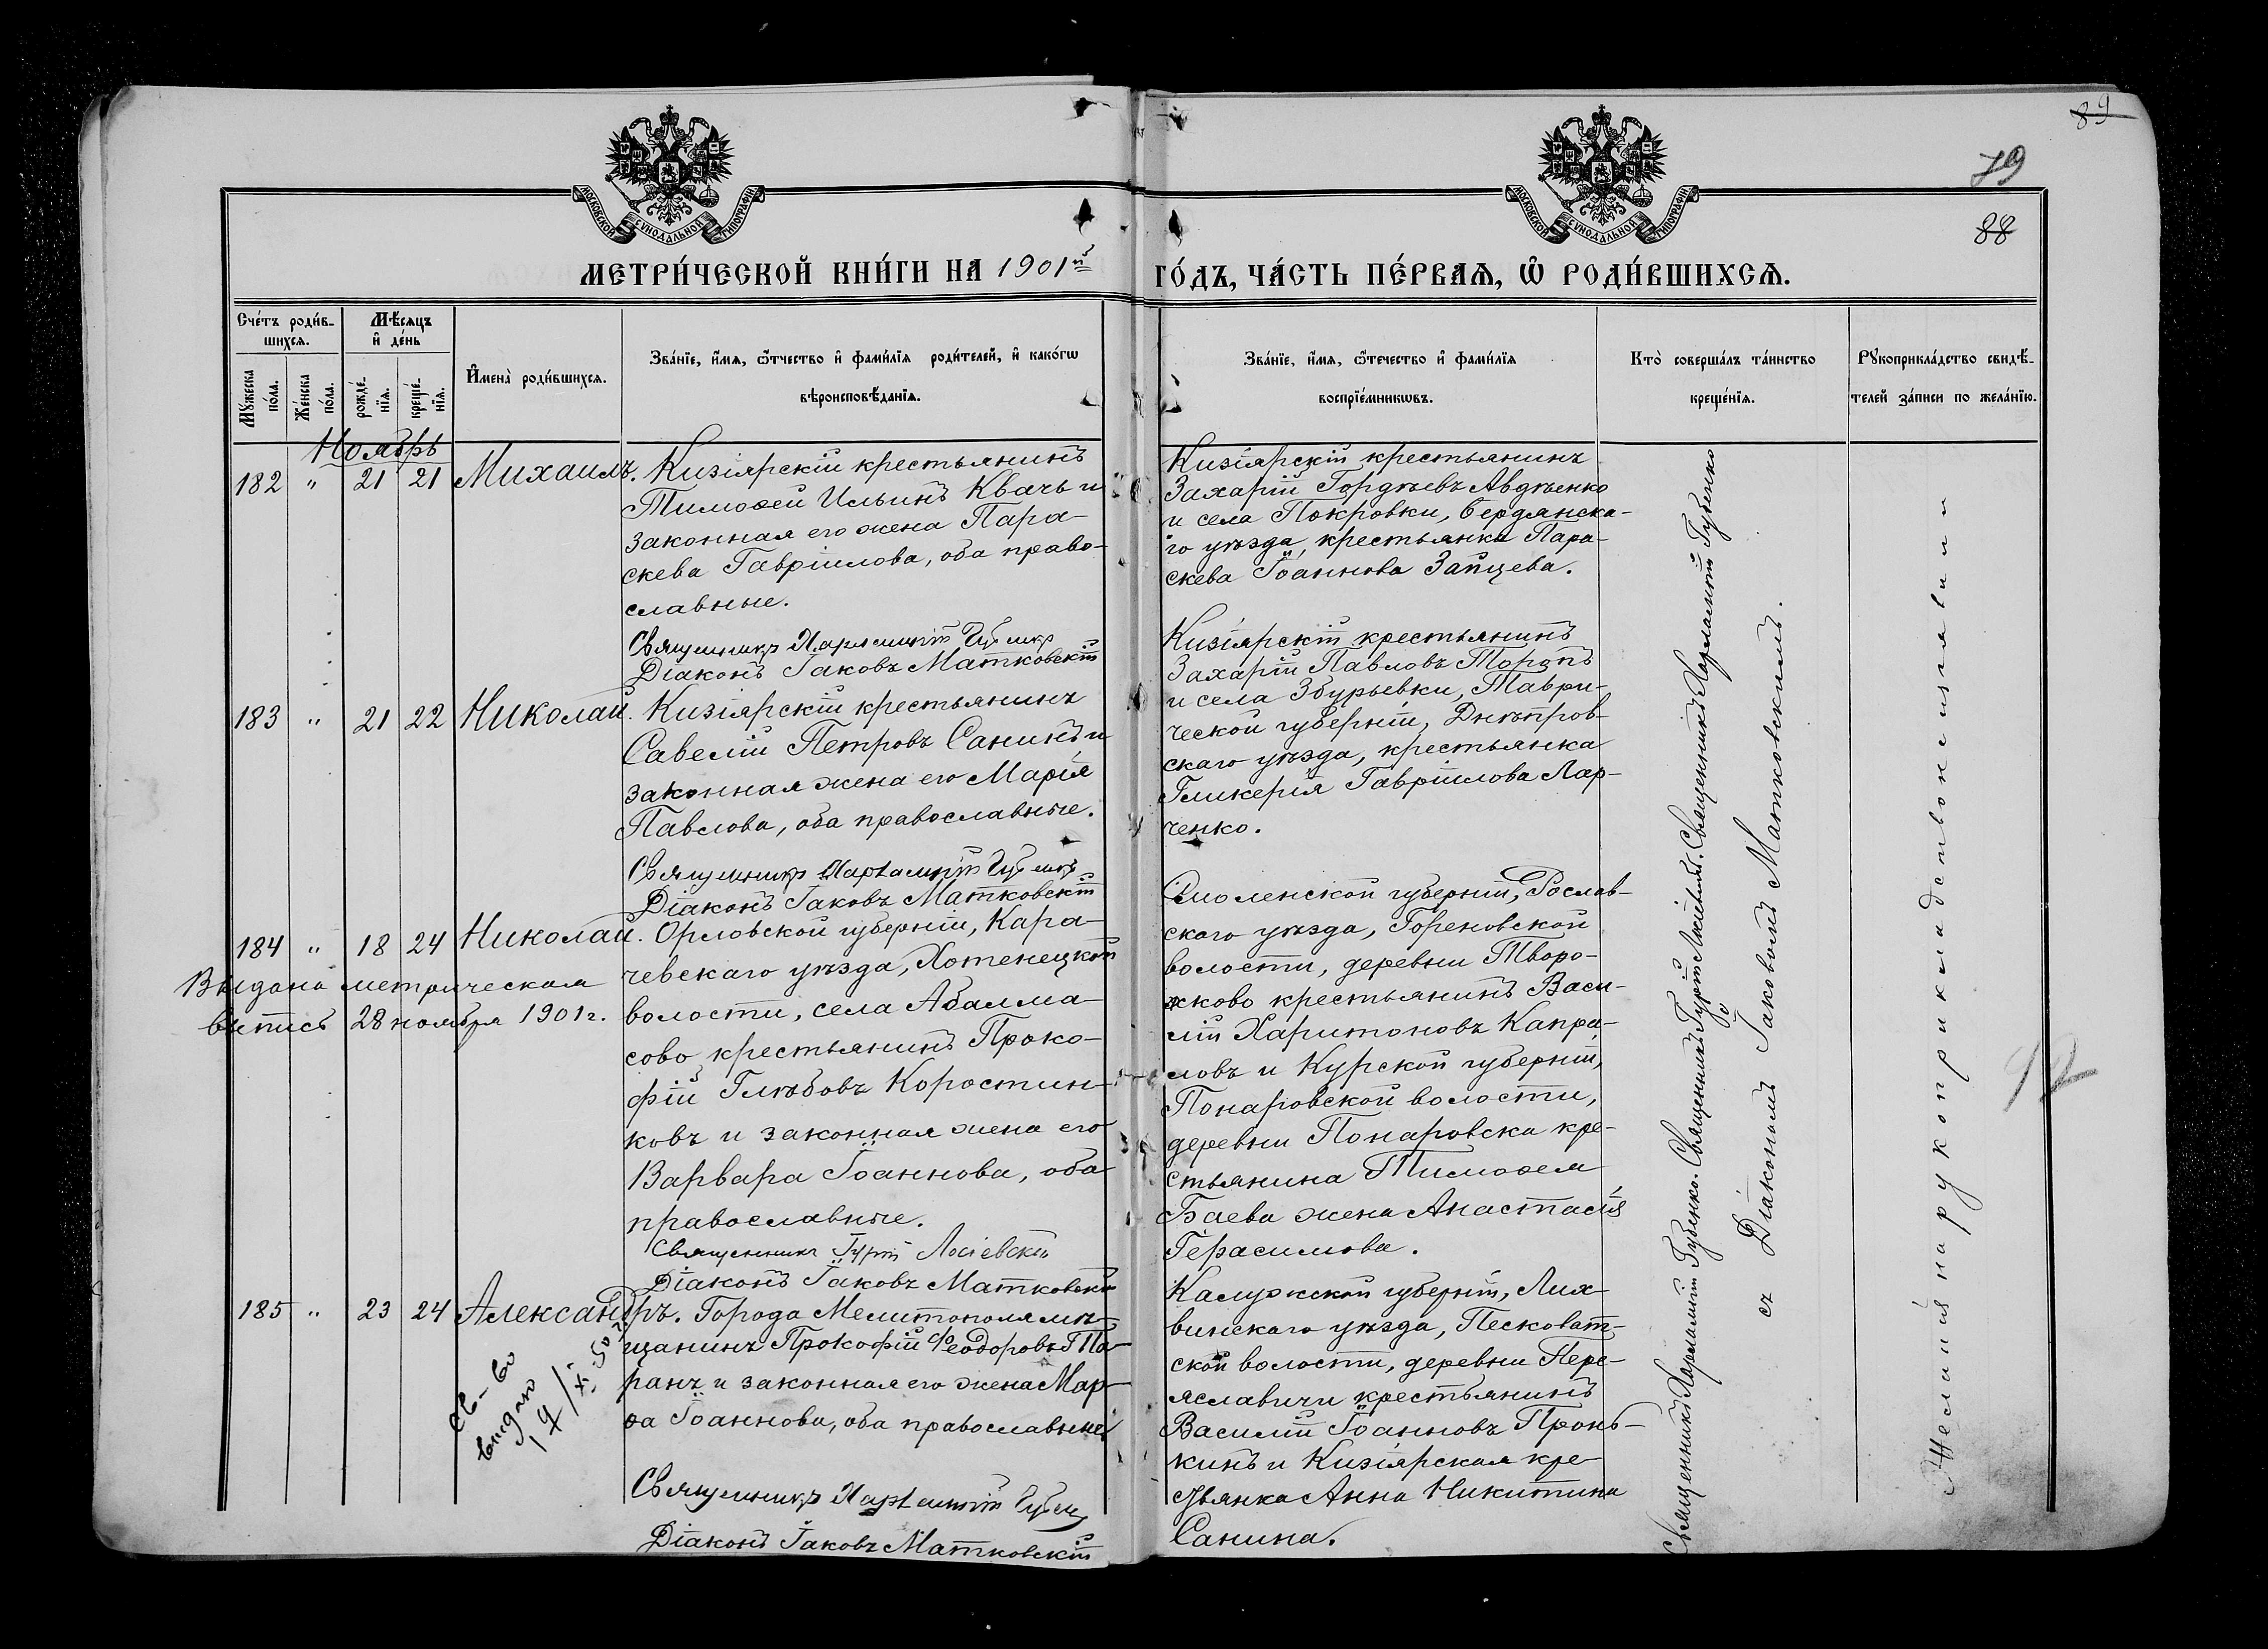 89
79
88
МОСКОВСКОЙ СѴНОДАЛЬНОЙ ТИПОГРАФІИ
МОСКОВСКОЙ СѴНОДАЛЬНОЙ ТИПОГРАФІИ
МЕТРИ́ЧЕСКОЙ КНИ́ГИ НА 1901й ГО́ДЪ, ЧА́СТЬ ПЕ́РВАѦ, Ѿ РОДИ́ВШИХСѦ.
Сче́тъ роди́в-
шихсѧ.
Мꙋжеска по́ла.
Же́нска по́ла.
Мѣ́сѧцъ
и҆ де́нь
рожде́-
нїѧ.
креще́-
нїѧ.
И҆мена̀ роди́вшихсѧ.
Зва́нїе, и҆́мѧ, ѻ҆́тчество и҆ фами́лїѧ роди́телей, и҆ како́гѡ
вѣроисповѣ́данїѧ.
Зва́нїе, и҆́мѧ, ѻ҆́течество и҆ фами́лїѧ
воспрїе́мникѡвъ.
Кто̀ соверша́лъ та́инство
креще́нїѧ.
Рꙋкоприкла́дство свидѣ́-
телей за́писи по жела́нїю.
Ноябрь
182 " 21 21 Михаилъ.
Кизіярскій крестьянинъ
Тимоѳей Ильинъ Квачь и
законная его жена Пара-
скева Гавріилова, оба право-
славные.
Священникъ Харлампій Губенко
Діаконъ Іаковъ Матковскій
Кизіярскій крестьянинъ
Захарій Гордѣевъ Авдѣенко
и села Покровки, Бердянска-
го уѣзда, крестьянка Пара-
скева Іоаннова Зайцева.
183 " 21 22 Николай.
Кизіярскій крестьянинъ
Савелій Петровъ Санинъ и
законная жена его Марія
Павлова, оба православные.
Священникъ Харлампій Губенко
Діаконъ Іаковъ Матковскій
Кизіярскій крестьянинъ
Захарій Павловъ Торопъ
и села Збурьевки, Таври-
ческой губерніи, Днѣпров-
скаго уѣзда, крестьянка
Гликерія Гавріилова Лар-
ченко.
184 " 18 24 Николай.
Выдана метрическая
выпись 28 ноября 1901 г.
Орловской губерніи, Кара-
чевскаго уѣзда, Хотенецкой
волости, села Абалма-
сово крестьянинъ Проко-
фій Глѣбовъ Коростин-
ковъ и законная жена его
Варвара Іоаннова, оба
православные.
Священникъ Гурій Лосіевскій
Діаконъ Іаковъ Матковскій
Смоленской губерніи, Рослав-
скаго уѣзда, Гореновской
волости, деревни Творо-
жково крестьянинъ Васи-
лій Харитоновъ Капра-
ловъ и Курской губерніи,
Понаровской волости,
деревни Понаровска кре-
стьянина Тимоѳея
Баева жена Анастасія
Герасимова.
185 " 23 24 Александръ.
св-во
выдано
Города Мелитополя мѣ-
щанинъ Прокофій Ѳеодоровъ
ранъ и законная его жена Мар-
ѳа Іоаннова, оба православные
Священникъ Харлампій Губенко
Діаконъ Іаковъ Матковскій
Калужской губерніи, Лих-
винскаго уѣзда, Песковат-
ской волости, деревни Пере-
яславичи крестьянинъ
Василій Іоанновъ Пронь-
кинъ и Кизіярская кре-
стьянка Анна Никитина
Санина.
Священникъ Харлампій Губенко. Священникъ Гурій Лосіевскій. Священникъ Харлампій Губенко
съ Діакономъ Іаковомъ Матковскимъ.
Желанія на рукоприкладство не изъявили